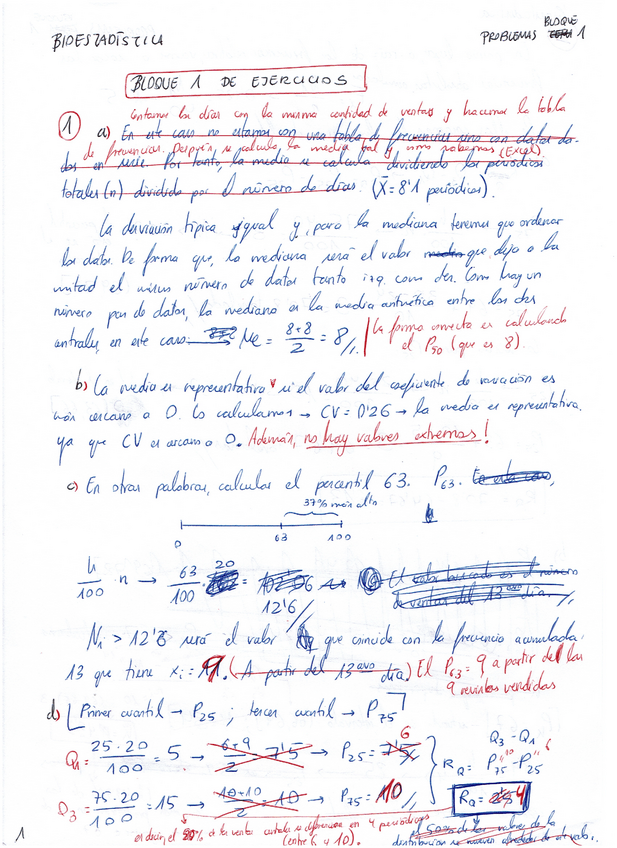 BIOESTADÍSTICA
PROBLEMAS BLOQUE 1
BLOQUE 1 DE EJERCICIOS
Contamos los días con la misma cantidad de ventas y hacemos la tabla
1 a) En este caso no estamos con una tabla de frecuencias sino con datos da-
de frecuencias. Después, se calcula la media tal y como sabemos (Excel).
dos en serie. Por tanto, la media se calcula dividiendo los periódicos
totales (n) dividido por el número de días. (X̄ = 8'1 periódicos).
La desviación típica igual y, para la mediana tenemos que ordenar
los datos. De forma que, la mediana será el valor que deja a la
mitad el mismo número de datos tanto izq. como der. Como hay un
número par de datos, la mediana es la media aritmética entre los dos
centrales, en este caso Me = 8+8/2 = 8 //.
La forma correcta es calculando
el P50 (que es 8).
b) La media es representativa si el valor del coeficiente de variación es
más cercano a 0. Lo calculamos → CV = 0'26 → la media es representativa,
ya que CV es cercano a 0. Además, no hay valores extremos!
c) En otras palabras, calcular el percentil 63. P63. En este caso,
37% más alto
0 63 100
k/100 · n → 63/100 · 20 = 12'6 //
El valor buscado es el número
de ventas del 13avo día. //
Ni > 12'6 será el valor que coincide con la frecuencia acumulada
13 que tiene xi = 9. (A partir del 13avo día) El P63 = 9 a partir de las
9 revistas vendidas
d) [Primer cuantil → P25 ; tercer cuantil → P75]
Q1 = 25·20/100 = 5 → 6+9/2 = 7'5 → P25 = 7'5 6
RQ = Q3 - Q1
P75 - P25 10 6
Q3 = 75·20/100 = 15 → 10+10/2 = 10 → P75 = 10 //
RQ = 4
es decir, el 50% de las ventas centrales se diferencian en 4 periódicos
(entre 6 y 10).
el 50% de los valores de la
distribución se mueven alrededor de
1